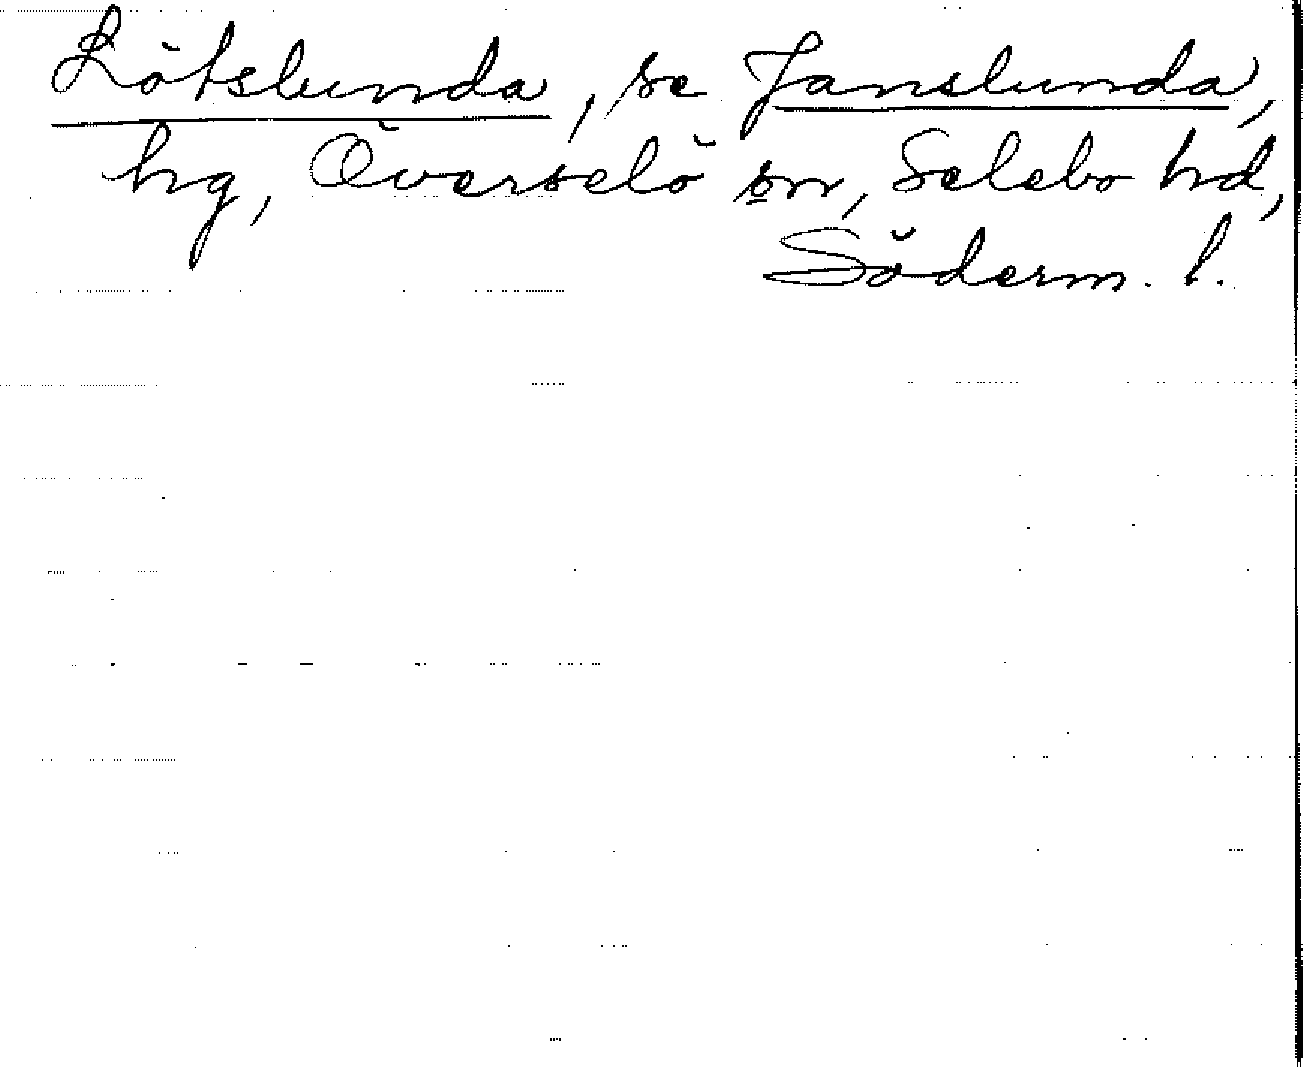 Lötslunda, se Janslunda,
hg, Överselö sn, Selebo hd,
Söderm. l.